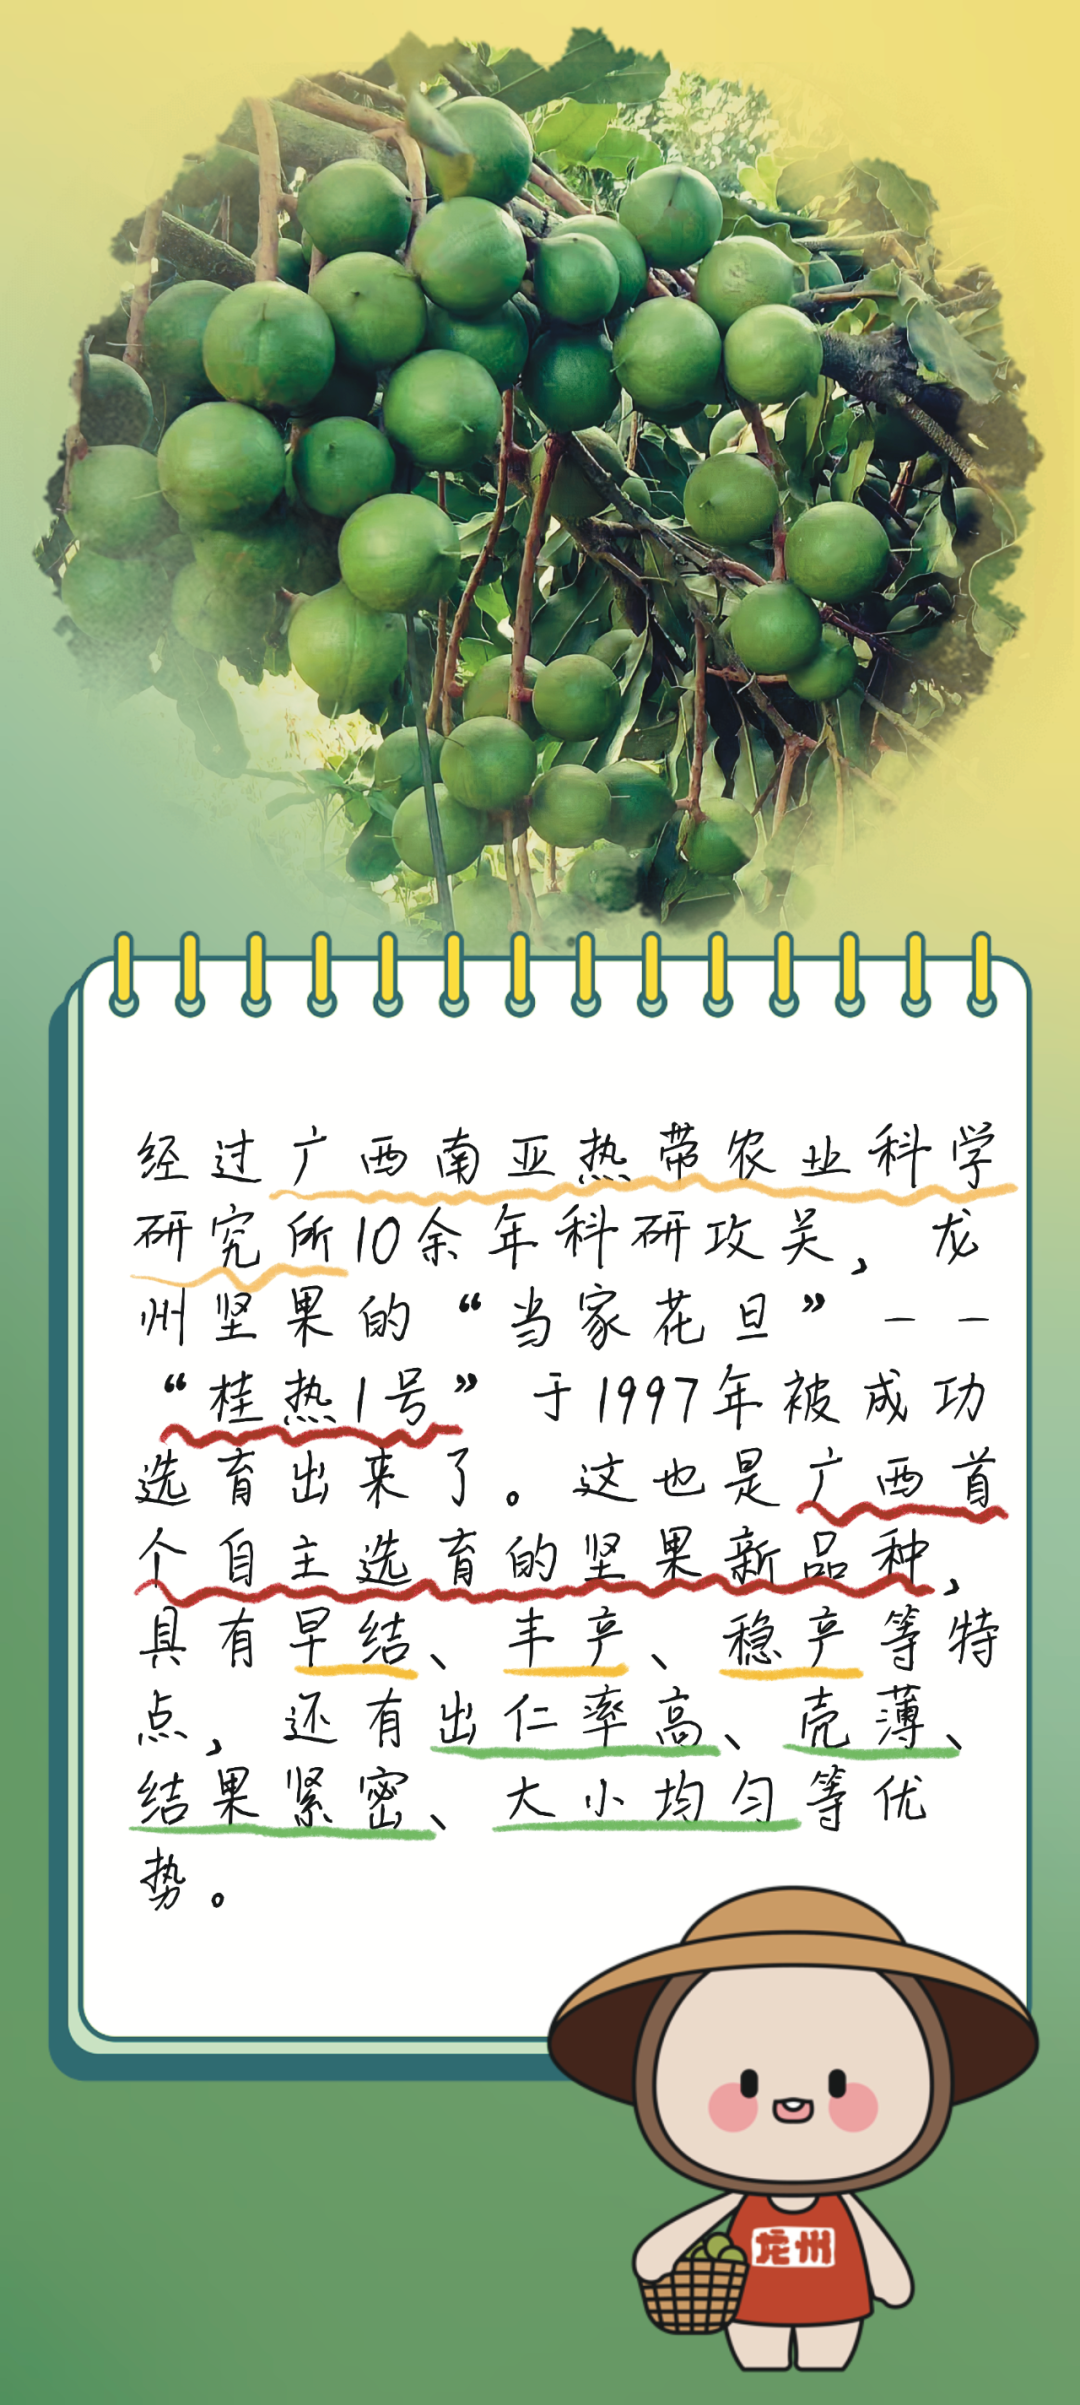 经过广西南亚热带农业科学
研究所10余年科研攻关，龙
州坚果的“当家花旦”——
“桂热1号”于1997年被成功
选育出来了。这也是广西首
个自主选育的坚果新品种，
具有早结、丰产、稳产等特
点，还有出仁率高、壳薄、
结果紧密、大小均匀等优
势。
龙州